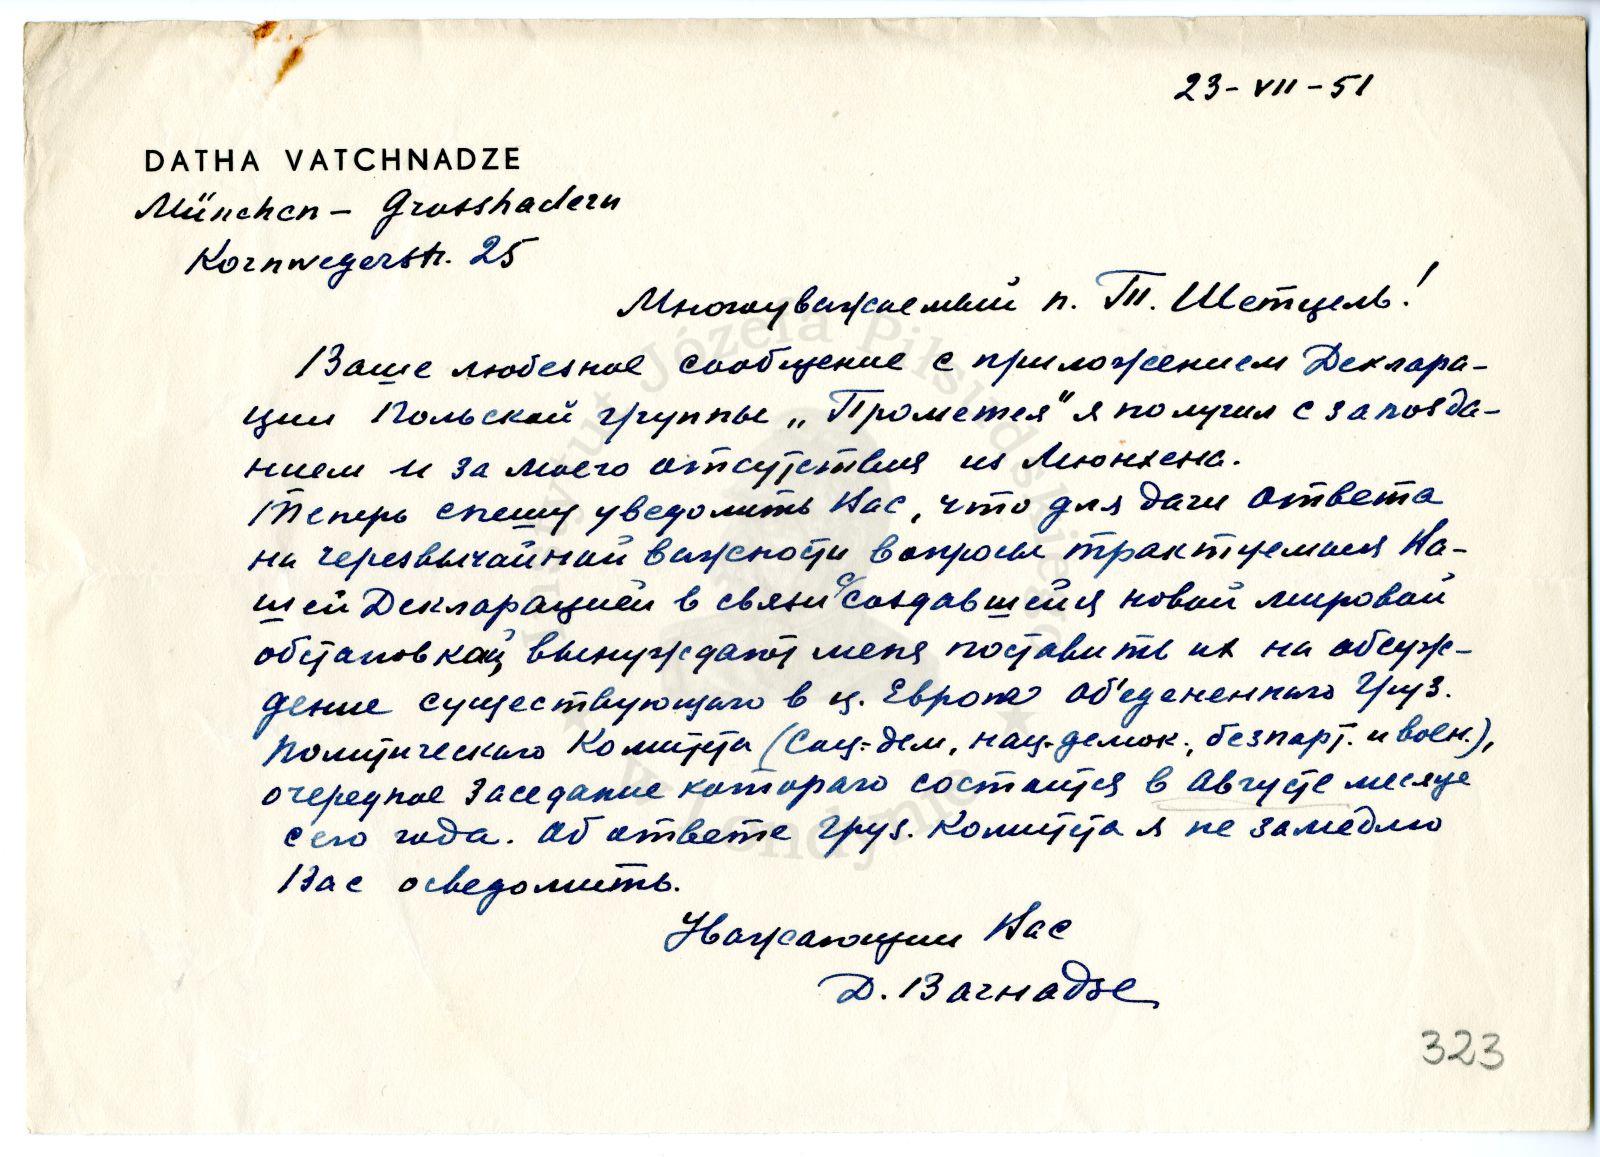 23-VII-51
DATHA VATCHNADZE
München - Grosshadern
Kornwegerstr. 25
Многоуважаемый п. Т. Шетцель!
Ваше любезное сообщение с приложением Деклара-
ции Польской группы „Прометея" я получил с запозда-
нием и за моего отсутствия из Мюнхена.
Теперь спешу уведомить Вас, что для дачи ответа
на черезвычайной важности вопросы трактуемыя Ва-
шей Декларацией в связи с создавшейся новой мировой
обстановкой, вынуждают меня поставить их на обсуж-
дение существующаго в ц. Европе об'едененнаго Груз.
Политическаго Комитета (Соц-дем, нац-демок., безпарт. и воен.),
очередное заседание котораго состоится в Августе месяце
сего года. Об ответе Груз. Комитета я не замедлю
Вас осведомить.
Уважающий Вас
Д. Вачнадзе
323
Instytut Józefa Piłsudskiego
w Londynie